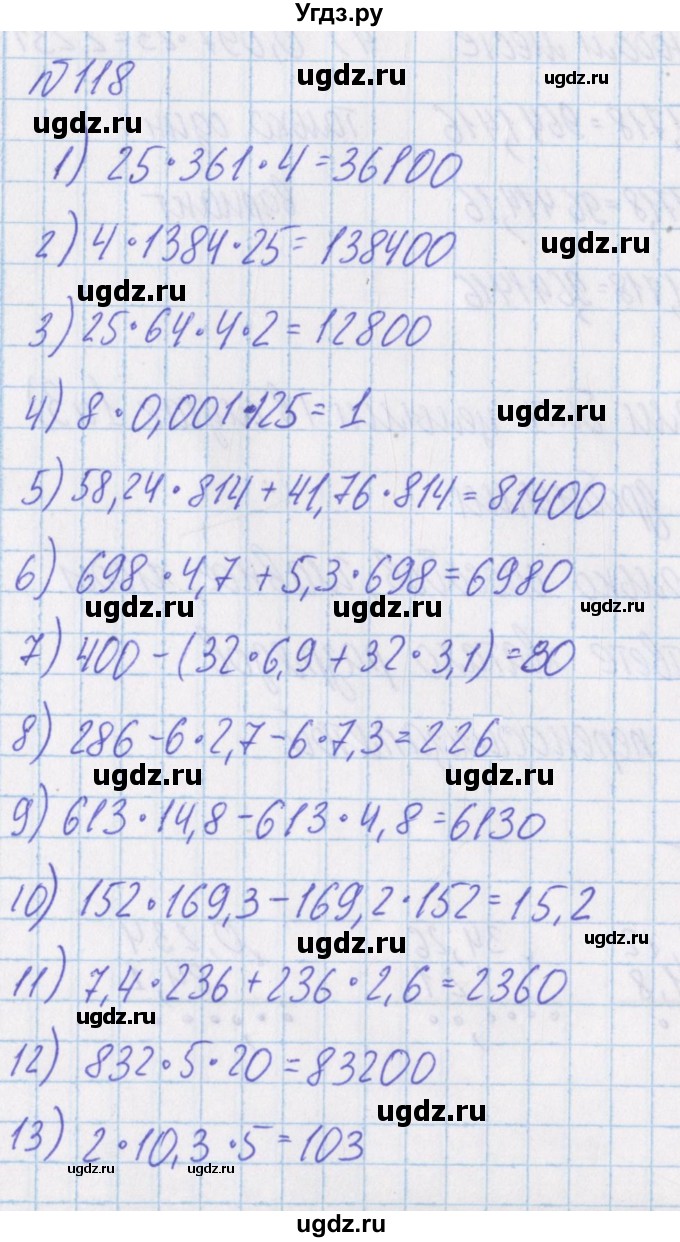 Угдз.ру
ugdz.ru
ugdz.ru
№118
ugdz.ru
1) 25·361·4=36100
2) 4·1384·25=138400
ugdz.ru
ugdz.ru
3) 25·64·4·2=12800
4) 8·0,001·125=1
ugdz.ru
5) 58,24·814+41,76·814=81400
6) 698·4,7+5,3·698=6980
ugdz.ru
ugdz.ru
ugdz.ru
7) 400-(32·6,9+32·3,1)=80
8) 286-6·2,7-6·7,3=226
ugdz.ru
ugdz.ru
9) 613·14,8-613·4,8=6130
10) 152·169,3-169,2·152=15,2
ugdz.ru
ugdz.ru
11) 7,4·236+236·2,6=2360
ugdz.ru
12) 832·5·20=83200
ugdz.ru
13) 2·10,3·5=103
ugdz.ru
ugdz.ru
ugdz.ru